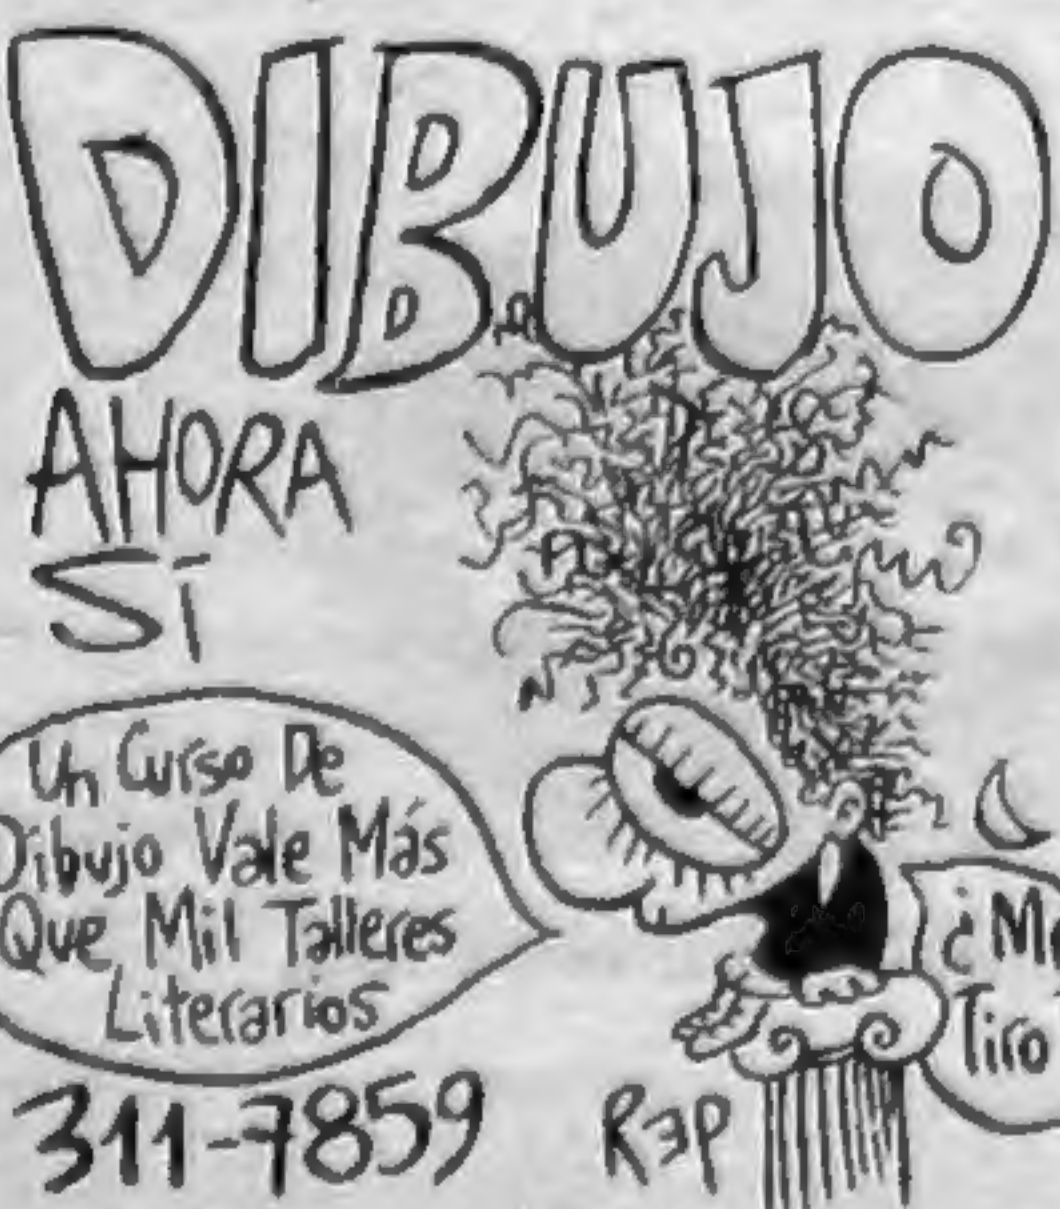 DIBUJO
AHORA
SÍ
Un Curso De
Dibujo Vale Más
Que Mil Talleres
Literarios
¿Me
Tiro
311-7859
REP